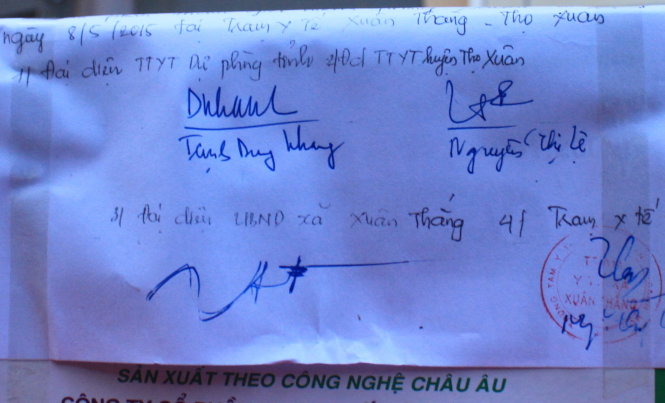 ngày 8/5/2015 tại Trạm y tế Xuân Thắng - Thọ Xuân
1/ Đại diện TTYT Dự phòng tỉnh 2/ Đd TTYT huyện Thọ Xuân
Nguyễn Thị Lệ
3/ Đại diện UBND xã Xuân Thắng 4/ Trạm y tế
XUÂN THẮNG
SẢN XUẤT THEO CÔNG NGHỆ CHÂU ÂU
CÔNG TY CỔ PHẦN